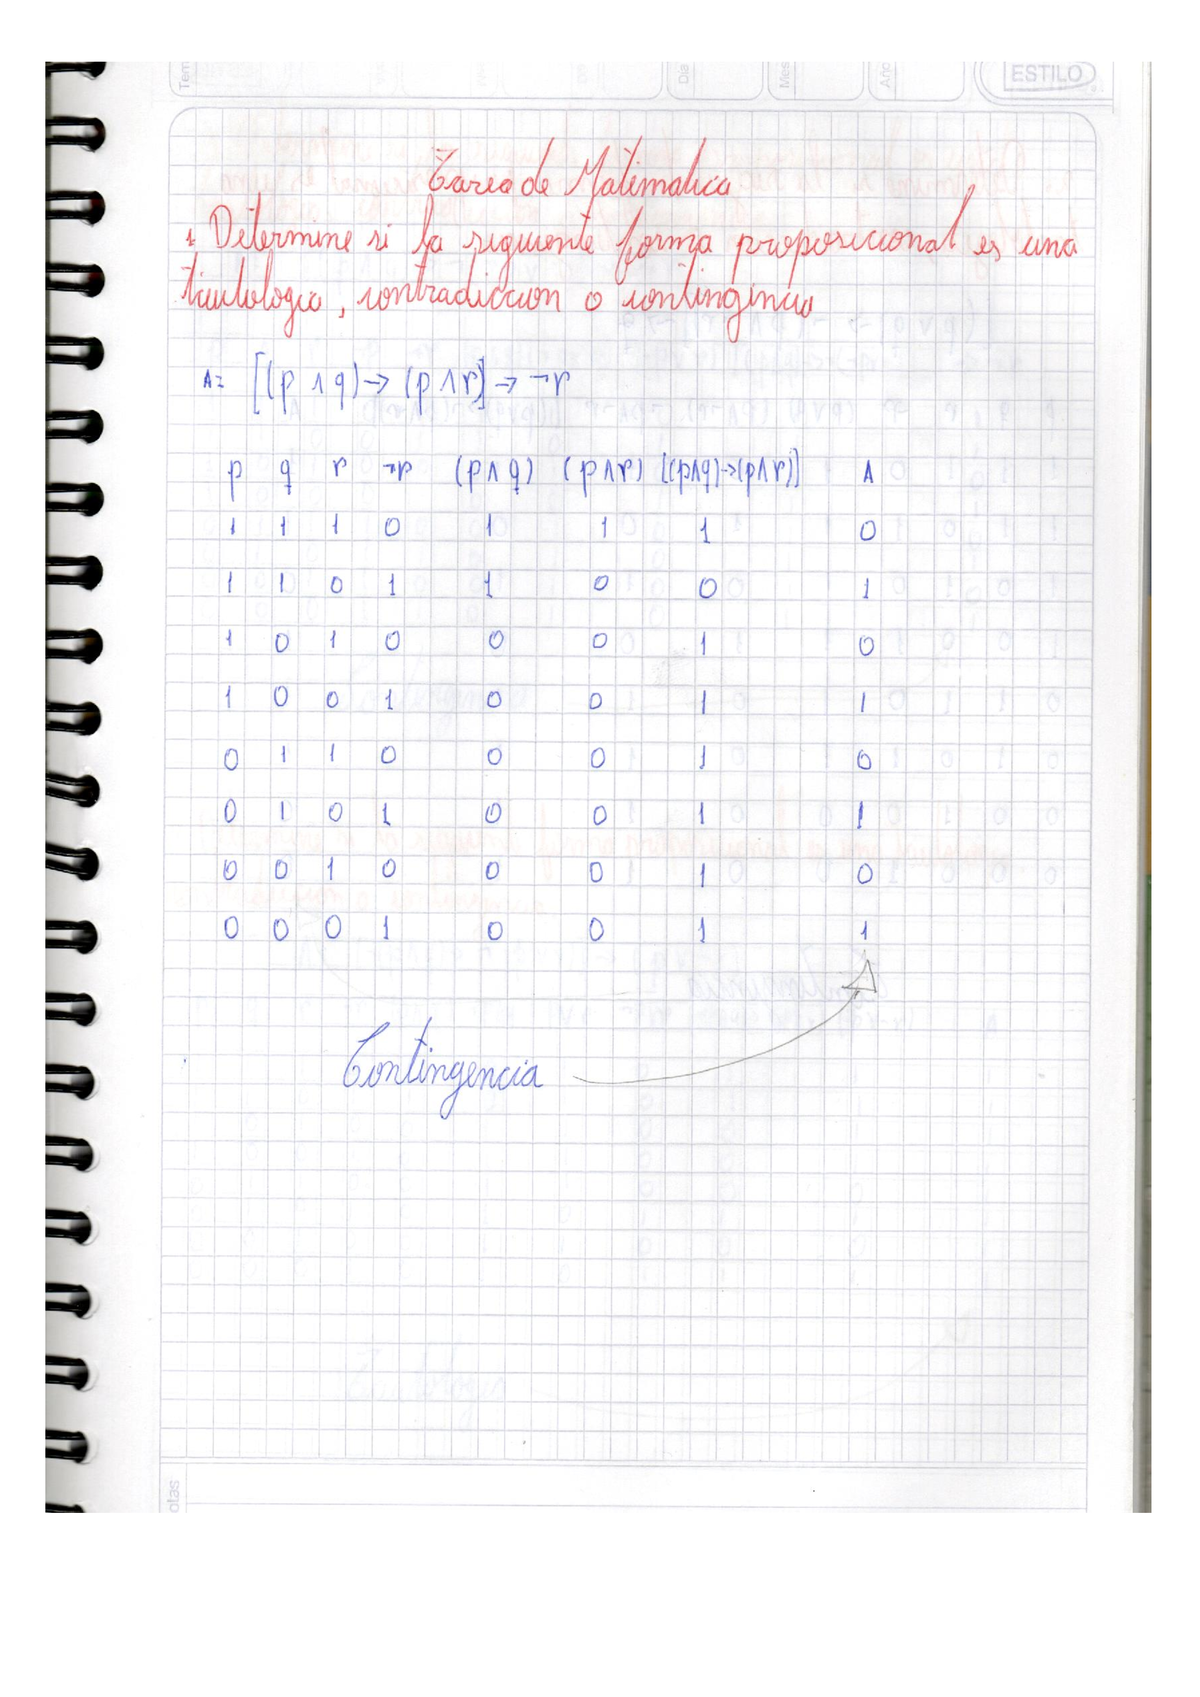 Tem
Dia
Mes
Año
ESTILO
Tarea de Matematica
1. Determine si la siguiente forma proposicional es una
tautologia, contradiccion o contingencia
A= [(p ∧ q) → (p ∧ r)] → ¬r
p q r ¬r (p ∧ q) (p ∧ r) [(p∧q)→(p∧r)] A
1 1 1 0 1 1 1 0
1 1 0 1 1 0 0 1
1 0 1 0 0 0 1 0
1 0 0 1 0 0 1 1
0 1 1 0 0 0 1 0
0 1 0 1 0 0 1 1
0 0 1 0 0 0 1 0
0 0 0 1 0 0 1 1
Contingencia
otas